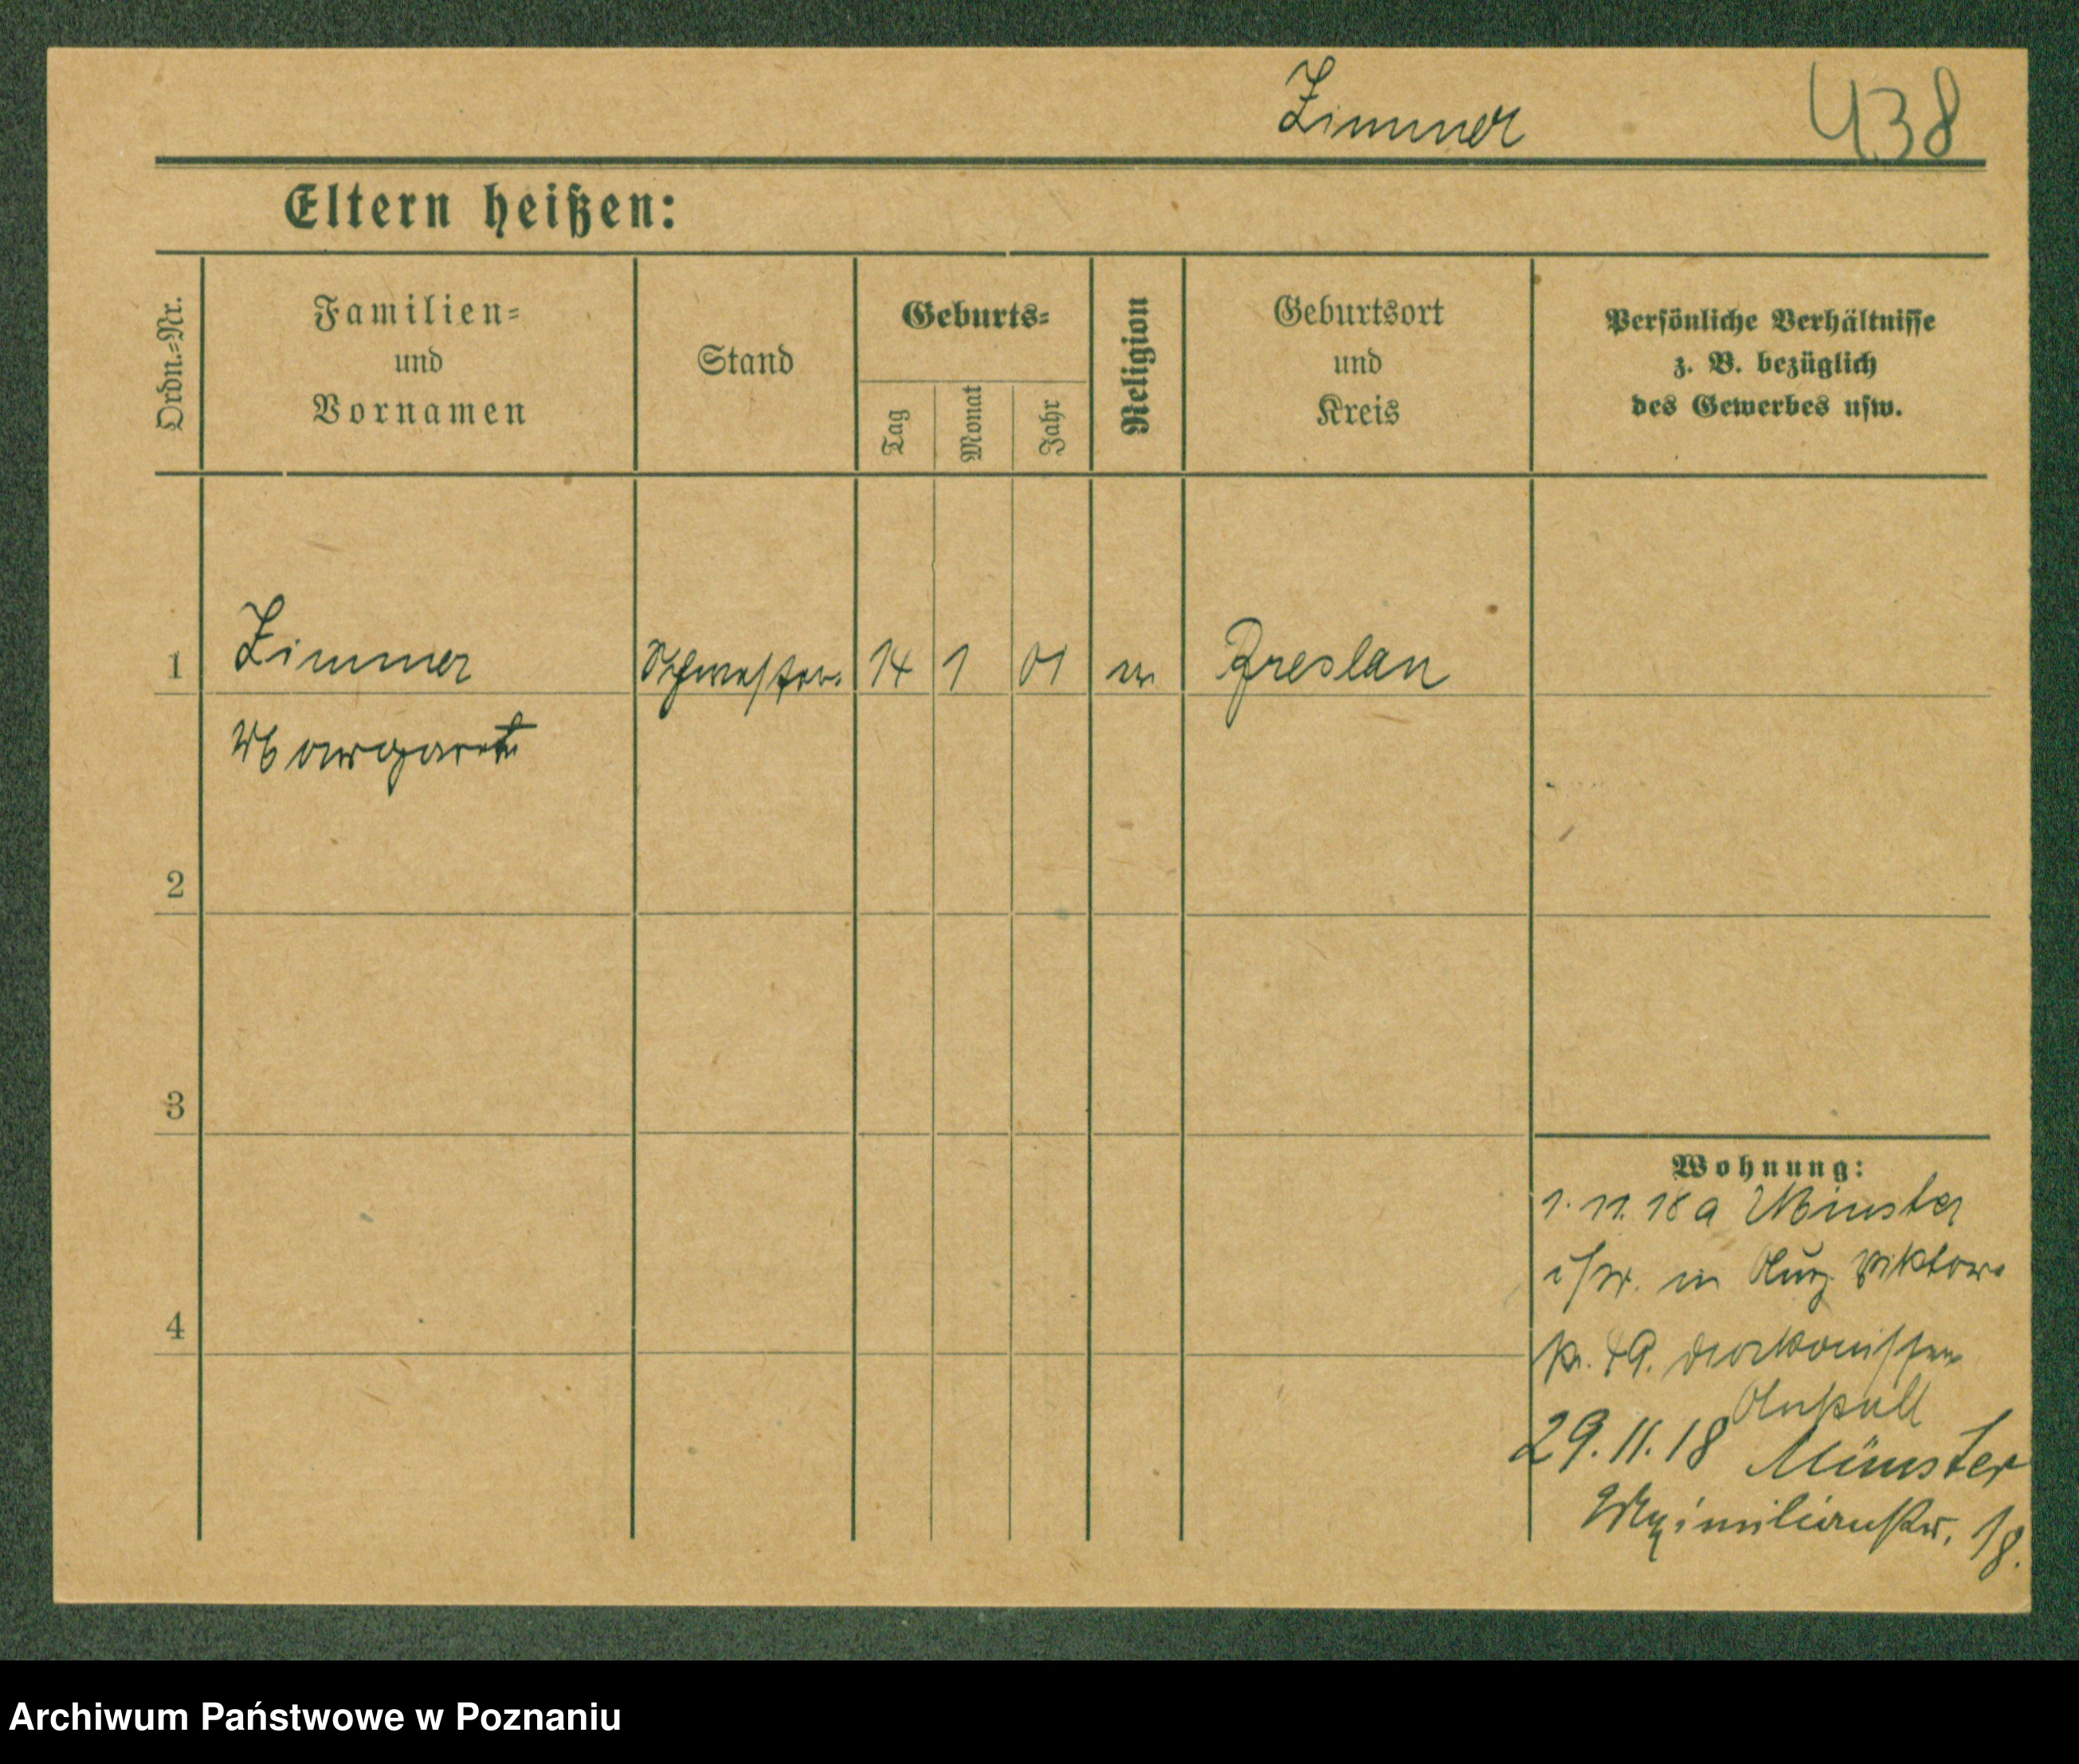 Zimmer 438
Eltern heißen:
Ordn.-Nr.
Familien-
und
Vornamen
Stand
Geburts-
Tag
Monat
Jahr
Religion
Geburtsort
und
Kreis
Persönliche Verhältnisse
z. B. bezüglich
des Gewerbes usw.
1 Zimmer Schwester 14 1 01 Breslau
Margarete
2
3
4
Wohnung:
1. 11. 18 a Münster
i/W. in
49. Diakonissen
29. 11. 18 Münster
Maximilianstr. 18.
Archiwum Państwowe w Poznaniu